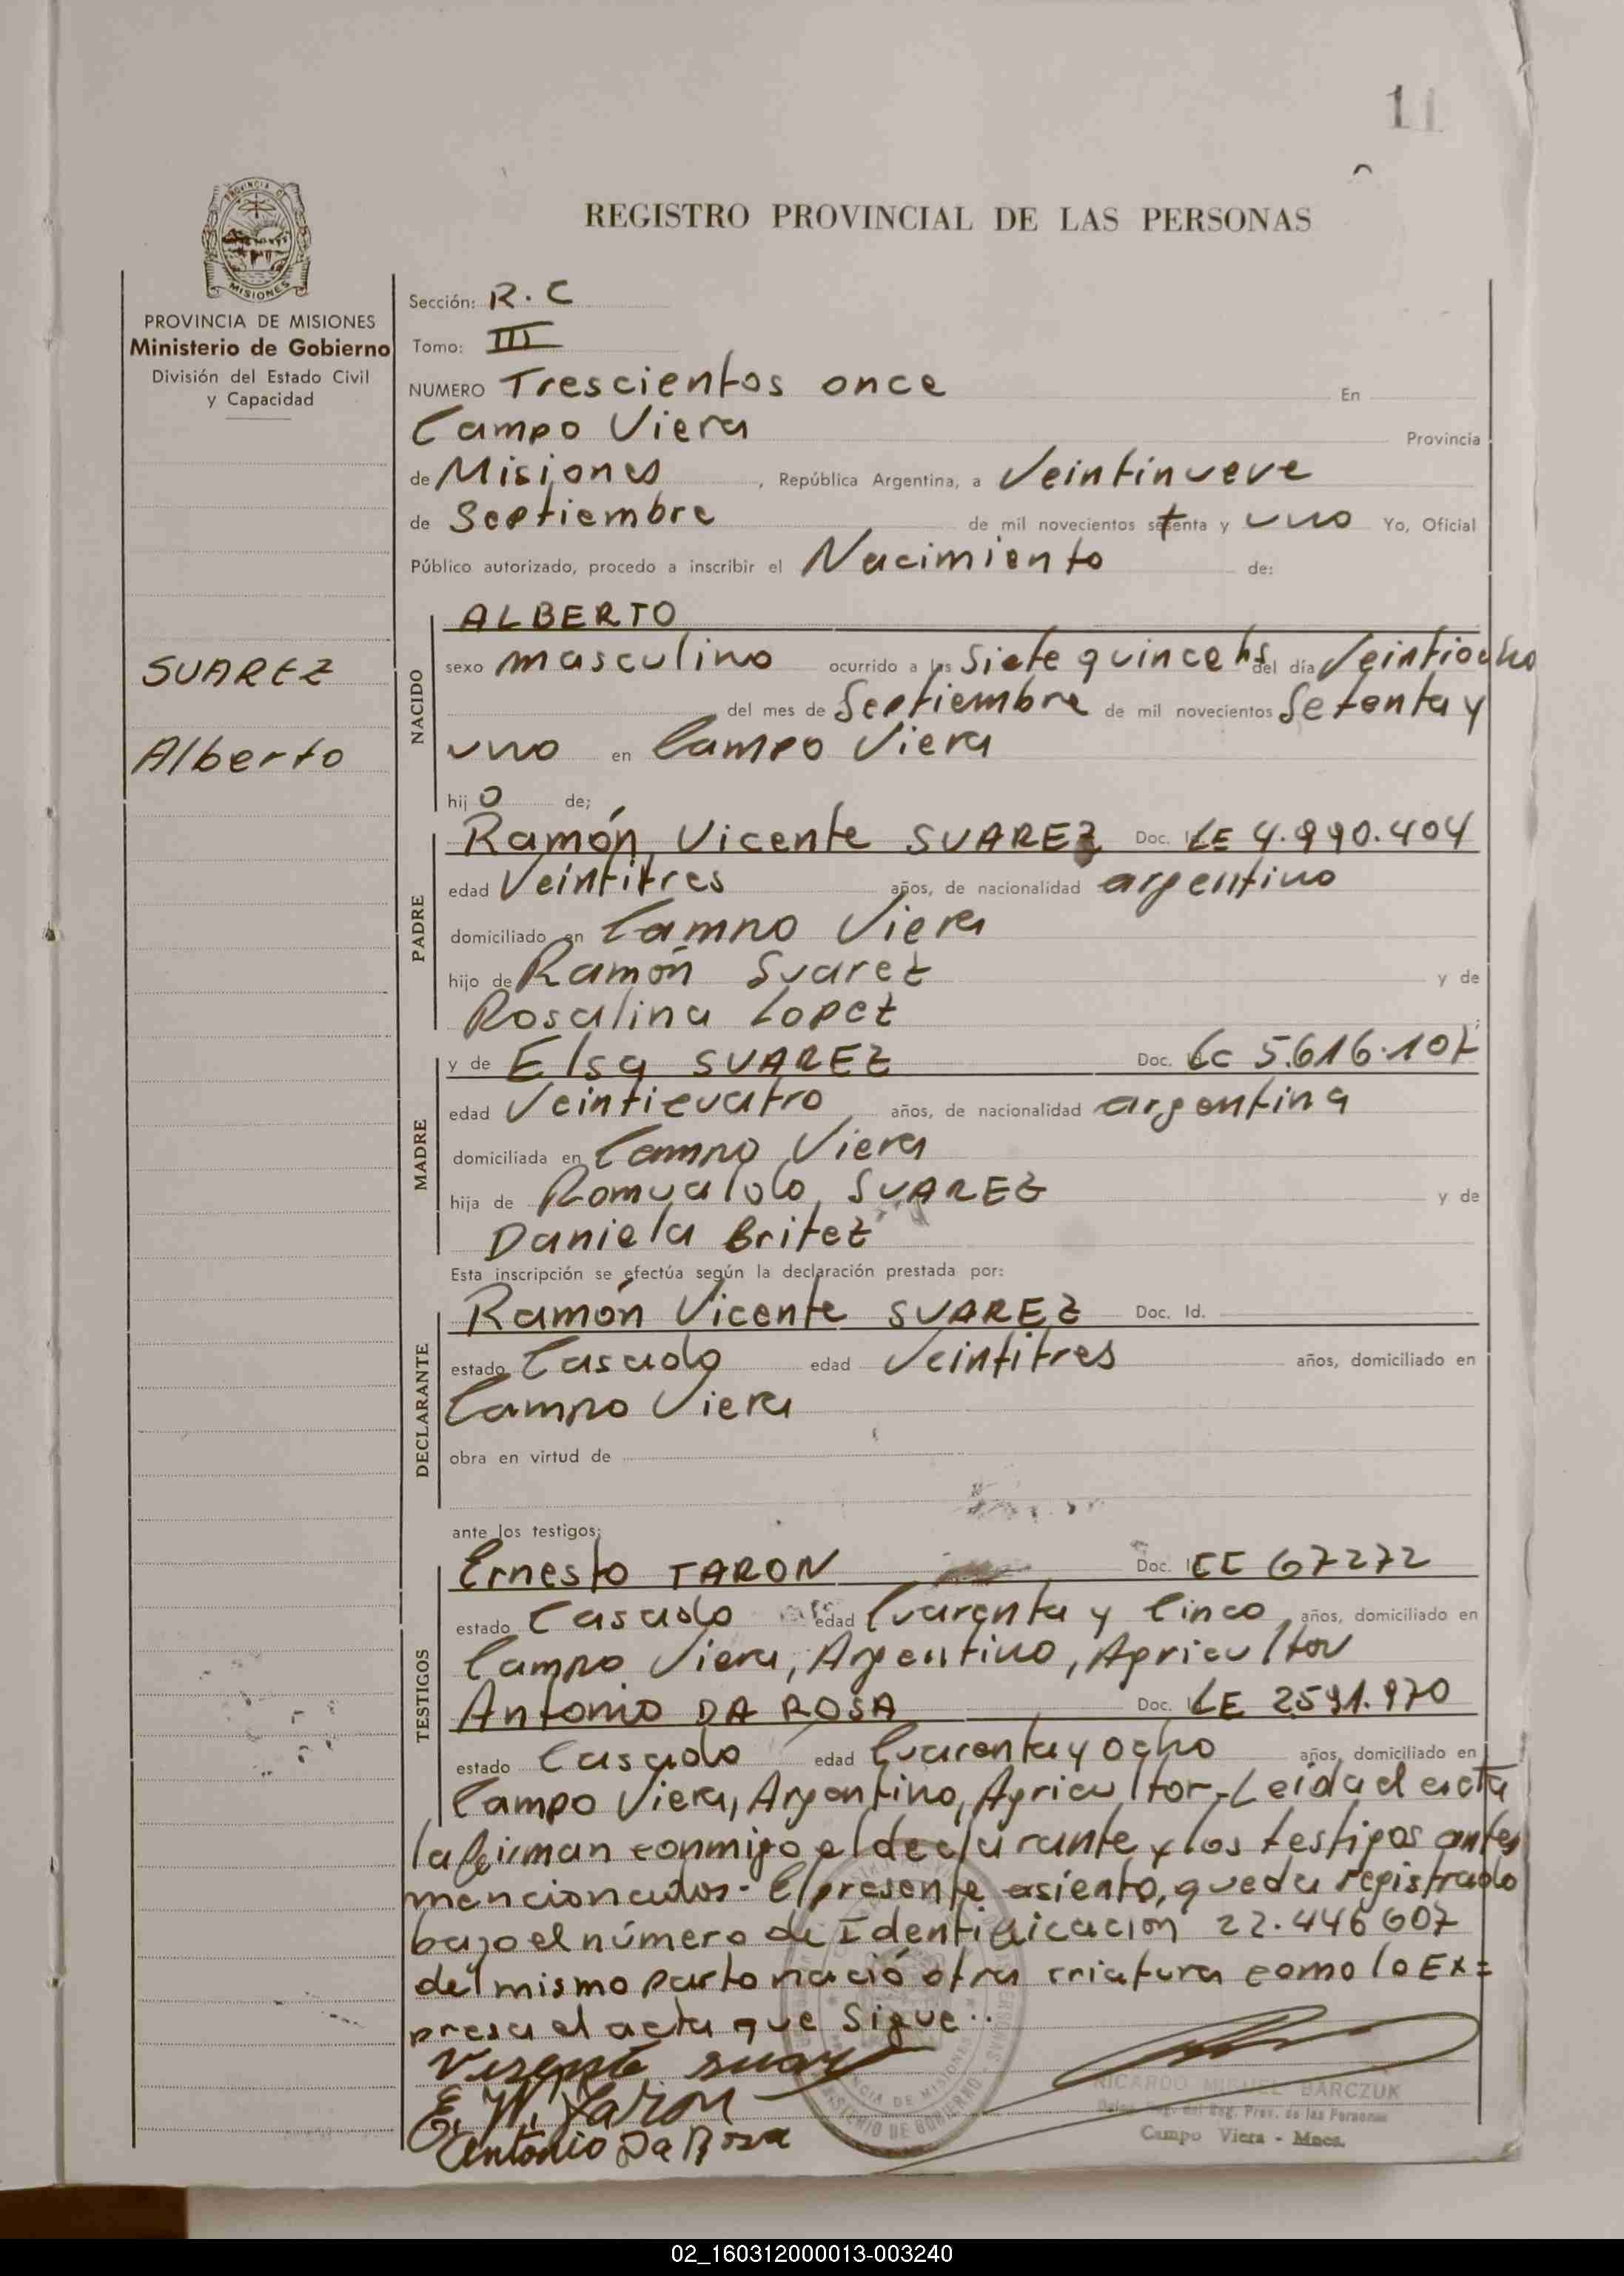 11
PROVINCIA DE
MISIONES
PROVINCIA DE MISIONES
Ministerio de Gobierno
División del Estado Civil
y Capacidad
SUAREZ
Alberto
REGISTRO PROVINCIAL DE LAS PERSONAS
Sección: R.C
Tomo: III
NUMERO Trescientos once En
Campo Viera Provincia
de Misiones, República Argentina, a Veintinueve
de Septiembre de mil novecientos setenta y uno Yo, Oficial
Público autorizado, procedo a inscribir el Nacimiento de:
NACIDO
ALBERTO
sexo masculino ocurrido a las Siete quince hs del día Veintiocho
del mes de Septiembre de mil novecientos Setenta y
uno en Campo Viera
hijo de;
PADRE
Ramón Vicente SUAREZ Doc. LE 4.990.404
edad Veintitres años, de nacionalidad argentino
domiciliado en Campo Viera
hijo de Ramón Suarez y de
Rosalina Lopez
MADRE
y de Elsa SUAREZ Doc. Id. LC 5.616.107
edad Veinticuatro años, de nacionalidad argentina
domiciliada en Campo Viera
hija de Romualdo SUAREZ y de
Daniela Britez
Esta inscripción se efectúa según la declaración prestada por:
DECLARANTE
Ramón Vicente SUAREZ Doc. Id.
estado Casado edad Veintitres años, domiciliado en
Campo Viera
obra en virtud de
ante los testigos:
TESTIGOS
Ernesto TARON Doc. CE 67272
estado Casado edad Cuarenta y Cinco años, domiciliado en
Campo Viera, Argentino, Agricultor
Antonio DA ROSA Doc. LE 2591.970
estado Casado edad Cuarenta y ocho años, domiciliado en
Campo Viera, Argentino, Agricultor-Leida el acta
la firman conmigo el declarante y los testigos antes
mencionados- El presente asiento, queda registrado
bajo el número de Identificacion 22.446607
del mismo parto nació otra criatura como lo Ex=
presa el acta que Sigue..
E. W. Taron
Antonio Da Rosa
RICARDO MIGUEL BARCZUK
Deleg. Reg. del Reg. Prov. de las Personas
Campo Viera - Mnes.
02_160312000013-003240